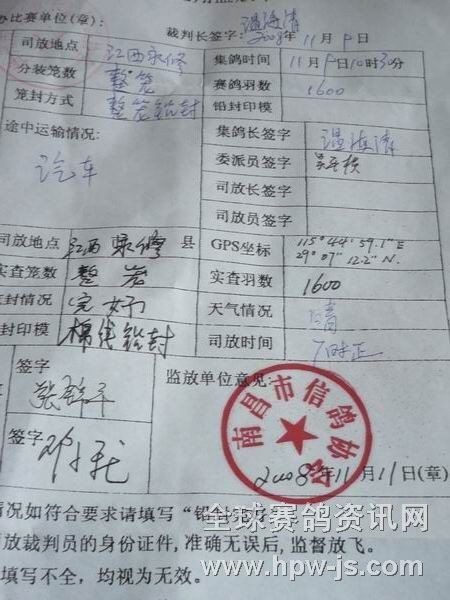 办比赛单位(章): 裁判长签字: 温海清
2008年11月9日
司放地点 江西永修 集鸽时间 11月9日10时30分
分装笼数 整笼 赛鸽羽数 1600
笼封方式 整笼铅封 铅封印模
途中运输情况: 集鸽长签字
汽车 委派员签字
司放长签字
司放员签字
司放地点 江西永修县 GPS坐标 115°44′59.1″E
29°07′12.2″N.
实查笼数 整笼 实查羽数 1600
封情况 完好 天气情况 晴
封印模 棉线铅封 司放时间 7时正
签字 监放单位意见:
签字
南昌市信鸽协会
2008年11月11日(章)
情况如符合要求请填写“铅封完好”
放裁判员的身份证件,准确无误后,监督放飞。
填写不全,均视为无效。
全球赛鸽资讯网
www.hpw-js.com